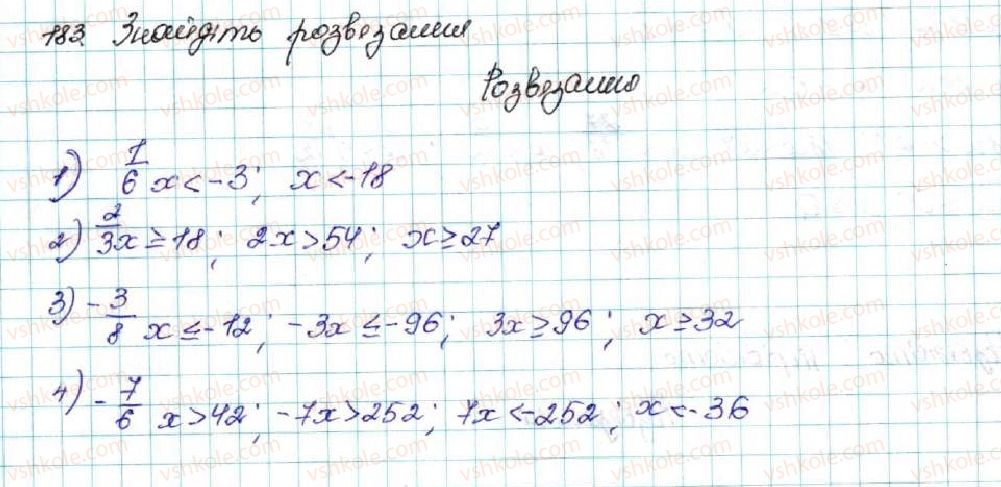 183. Знайдіть розвезання
Розвезання
1) 1/6 x < -3; x < -18
2) 2/3 x ≥ 18; 2x > 54; x ≥ 27
3) -3/8 x ≤ -12; -3x ≤ -96; 3x ≥ 96; x ≥ 32
4) -7/6 x > 42; -7x > 252; 7x < -252; x < -36